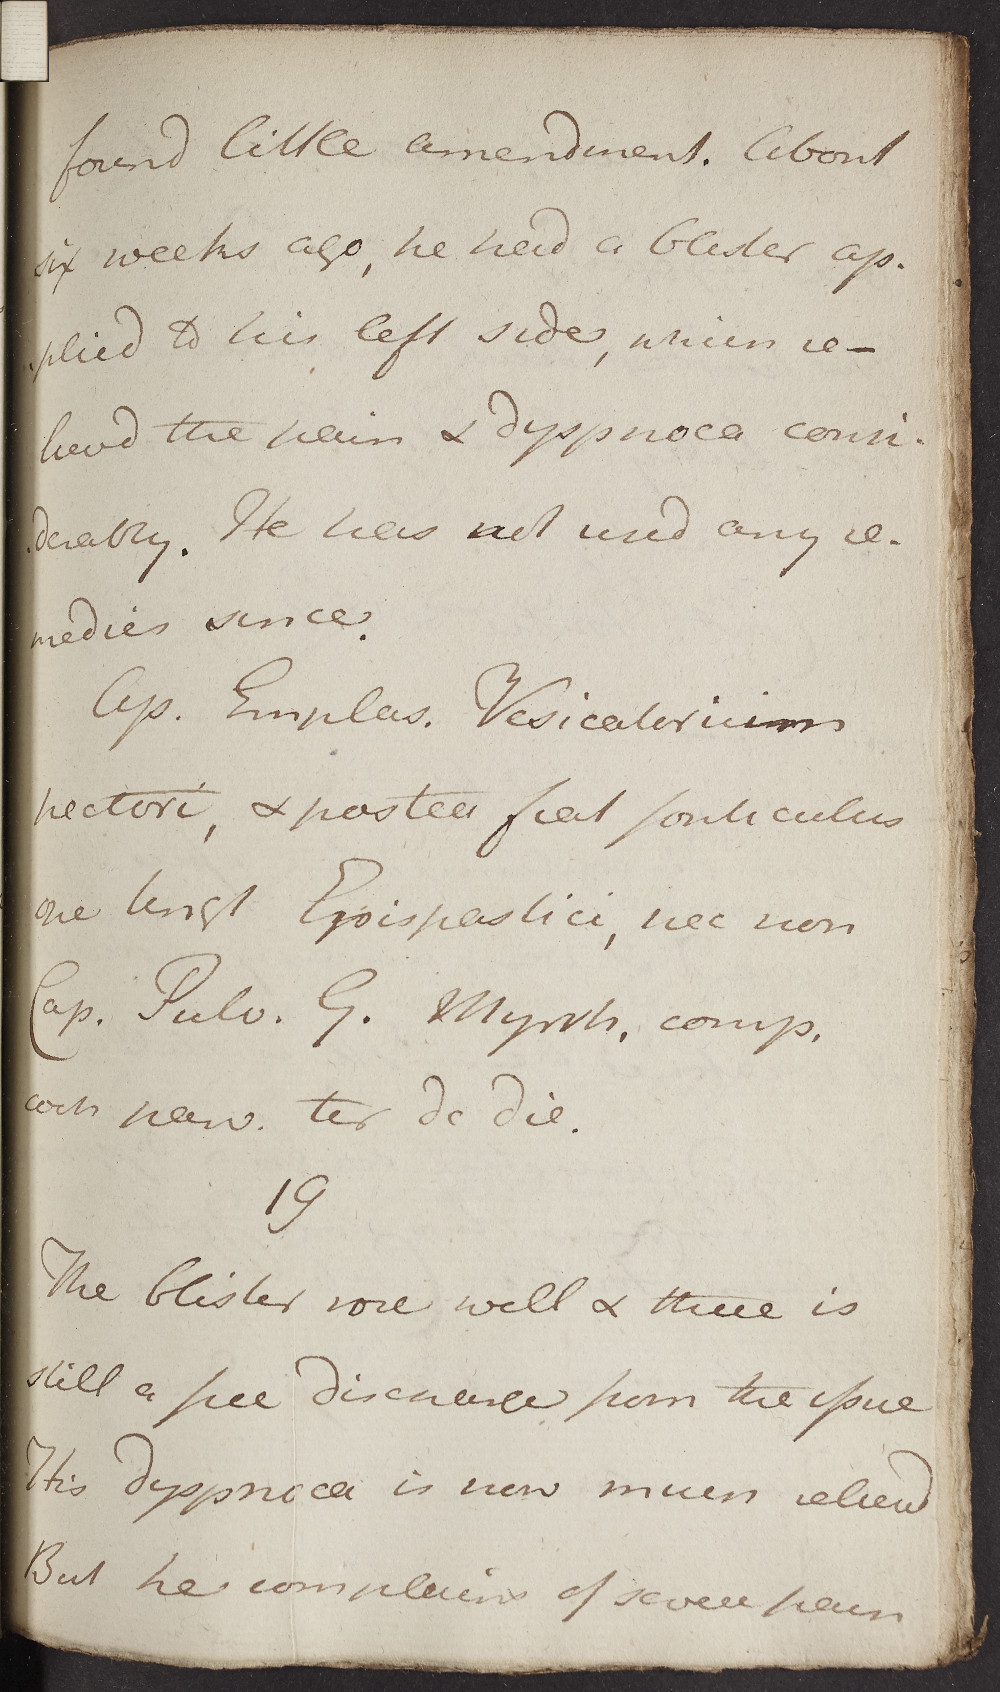 found little amendment. About
six weeks ago, he had a blister ap-
-plied to his left side, which re-
lievd the pain & dyspnoea consi-
-derably. He has not used any re-
medies since.
Ap. Emplas. Vesicatorium
pectori, & postea fiat fonticulus
ope Ungt Epispastici, nec non
Cap. Pulv. G. Myrrh. comp.
coch parv. ter de die.
19
The blister rose well & there is
still a free discharge from the issue
His dyspnoea is now much relievd
But he complains of severe pain